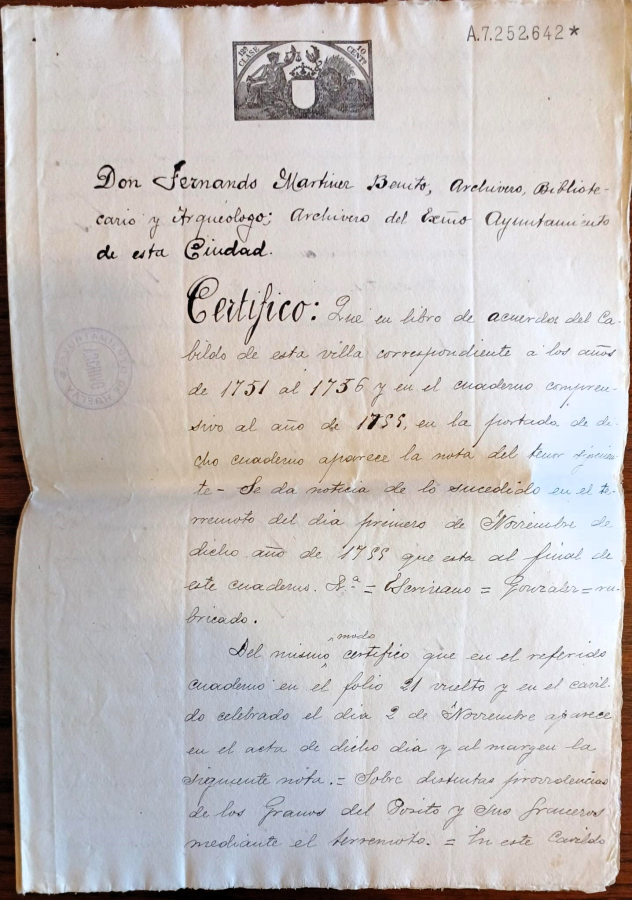 A.7.252.642*
12ª CLASE 10 CENTs
Don Fernando Martinez Benito, Archivero, Bibliote-
cario y Arqueólogo; Archivero del Exmo Ayuntamiento
de esta Ciudad.
Certifico: Que en libro de acuerdos del Ca-
bildo de esta villa correspondiente á los años
de 1751 al 1756 y en el cuaderno compren-
sivo al año de 1755, en la portada de di-
cho cuaderno aparece la nota del tenor siguien-
te - Se da noticia de lo sucedido en el te-
rremoto del dia primero de Noviembre de
dicho año de 1755 que esta al final de
este cuaderno. = Escrivano = Gonzalez = ru-
bricado.
Del mismo modo certifico que en el referido
cuaderno en el folio 21 vuelto y en el cavil-
do celebrado el dia 2 de Noviembre aparece
en el acta de dicho dia y al margen la
siguiente nota. = Sobre distintas providencias
de los Granos del Posito y sus graneros
mediante el terremoto. = En este Cavildo
AYUNTAMIENTO DE HUELVA
ARCHIVO